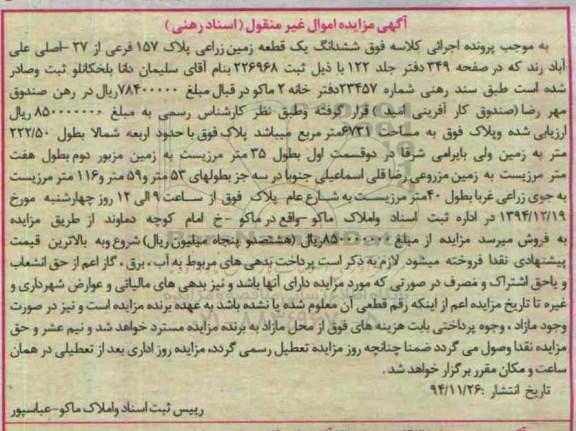 آگهی مزایده اموال غیر منقول (اسناد رهنی)
به موجب پرونده اجرائی کلاسه فوق ششدانگ یک قطعه زمین زراعی پلاک ۱۵۷ فرعی از ۲۷-اصلی علی
آباد رند که در صفحه ۳۴۹ دفتر جلد ۱۲۲ با ذیل ثبت ۲۲۶۹۶۸ بنام آقای سلیمان دانا بلخکانلو ثبت وصادر
شده است طبق سند رهنی شماره ۲۳۴۵۷ دفتر خانه ۲ ماکو در قبال مبلغ ۷۸۴۰۰۰۰۰ ریال در رهن صندوق
مهر رضا (صندوق کار آفرینی امید) قرار گرفته وطبق نظر کارشناس رسمی به مبلغ ۸۵۰۰۰۰۰۰۰ ریال
ارزیابی شده وپلاک فوق به مساحت ۶۷۳۱متر مربع میباشد پلاک فوق با حدود اربعه شمالا بطول ۲۲۲/۵۰
متر به زمین ولی بایرامی شرقا در دوقسمت اول بطول ۳۵ متر مرزیست به زمین مزبور دوم بطول هفت
متر مرزیست به زمین مزروعی رضا قلی اسماعیلی جنوبا در سه جز بطولهای ۵۳ متر و۵۹ متر و۱۱۶ متر مرزیست
به جوی زراعی غربا بطول ۴۰متر مرزیست به شارع عام پلاک فوق از ساعت ۹ الی ۱۲ روز چهارشنبه مورخ
۱۳۹۴/۱۲/۱۹ در اداره ثبت اسناد واملاک ماکو -واقع در ماکو -خ امام کوچه دماوند از طریق مزایده
به فروش میرسد مزایده از مبلغ ۸۵۰۰۰۰۰۰۰ ریال (هشتصدو پنجاه میلیون ریال) شروع وبه بالاترین قیمت
پیشنهادی نقدا فروخته میشود لازم به ذکر است پرداخت بدهی های مربوط به آب، برق، گاز اعم از حق انشعاب
و یاحق اشتراک و مصرف در صورتی که مورد مزایده دارای آنها باشد و نیز بدهی های مالیاتی و عوارض شهرداری و
غیره تا تاریخ مزایده اعم از اینکه رقم قطعی آن معلوم شده یا نشده باشد به عهده برنده مزایده است و نیز در صورت
وجود مازاد، وجوه پرداختی بابت هزینه های فوق از محل مازاد به برنده مزایده مسترد خواهد شد و نیم عشر و حق
مزایده نقدا وصول می گردد ضمنا چنانچه روز مزایده تعطیل رسمی گردد، مزایده روز اداری بعد از تعطیلی در همان
ساعت و مکان مقرر برگزار خواهد شد.
تاریخ انتشار :۹۴/۱۱/۲۶
رییس ثبت اسناد واملاک ماکو-عباسپور